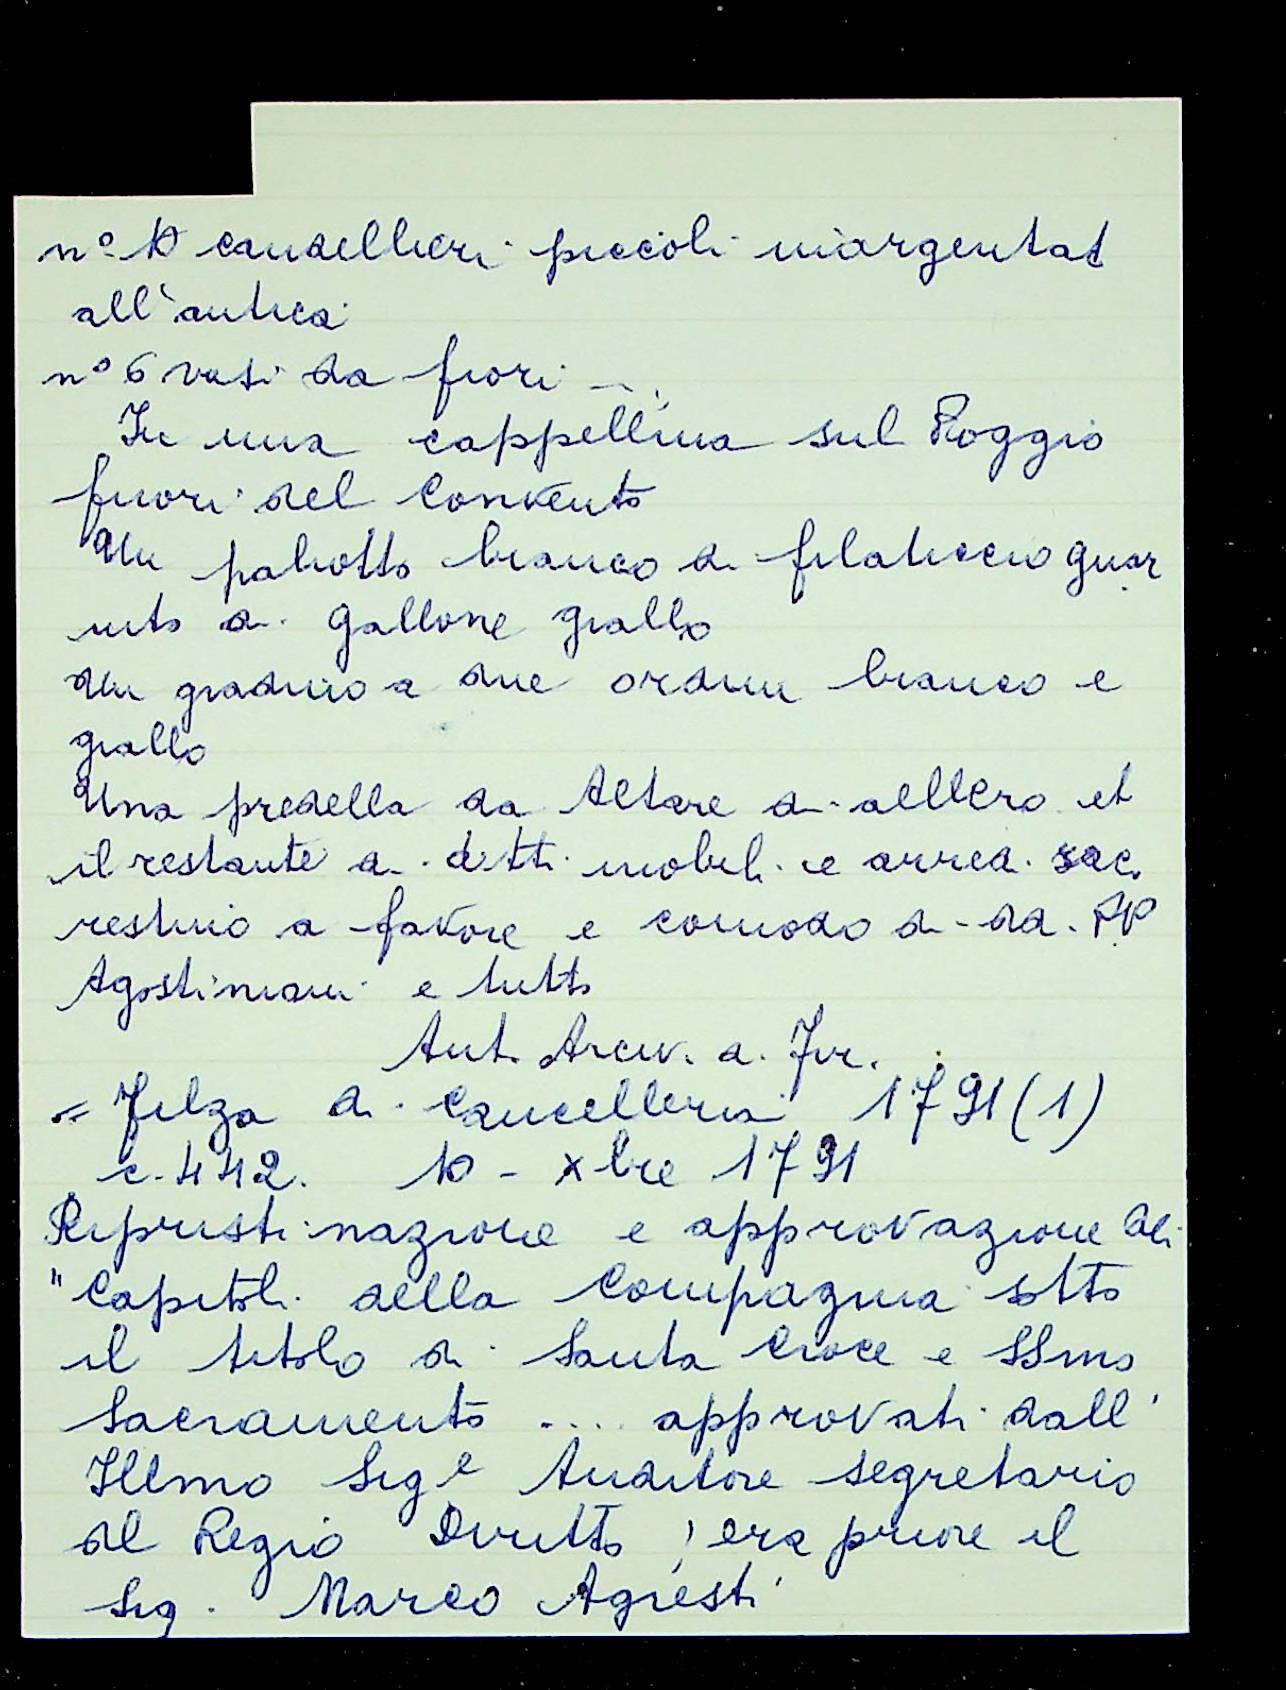 n° 10 candellieri piccoli inargentat
all'antica
n° 6 vasi da fiori - .
In una cappellina sul Poggio
fuori del Convento
Un paliotto bianco di filaticcio guar
nito di gallone giallo
Un gradino a due ordini bianco e
giallo
Una predella da Altare di albero et
il restante di detti mobili e arredi sac.
restino a favore e comodo di dd. PP
Agostiniani e tutto
Ant. Arciv. di Fir.
= Filza di Cancelleria 1791 (1)
c. 442. 10 - Xbre 1791
Ripristinazione e approvazione dei
" Capitoli della Compagnia sotto
il titolo di Santa Croce e SSmo
Sacramento .... approvati dall'
Illmo Sigr Auditore segretario
del Regio Diritto; era priore il
Sig. Marco Agresti